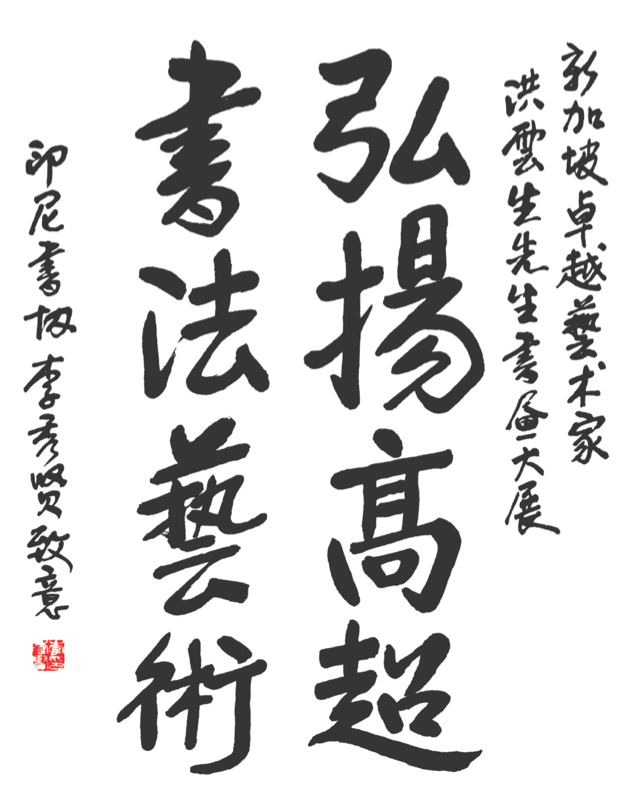 新加坡卓越藝术家
洪雲生先生書畫大展
弘揚高超
書法藝術
印尼書协李秀贤致意